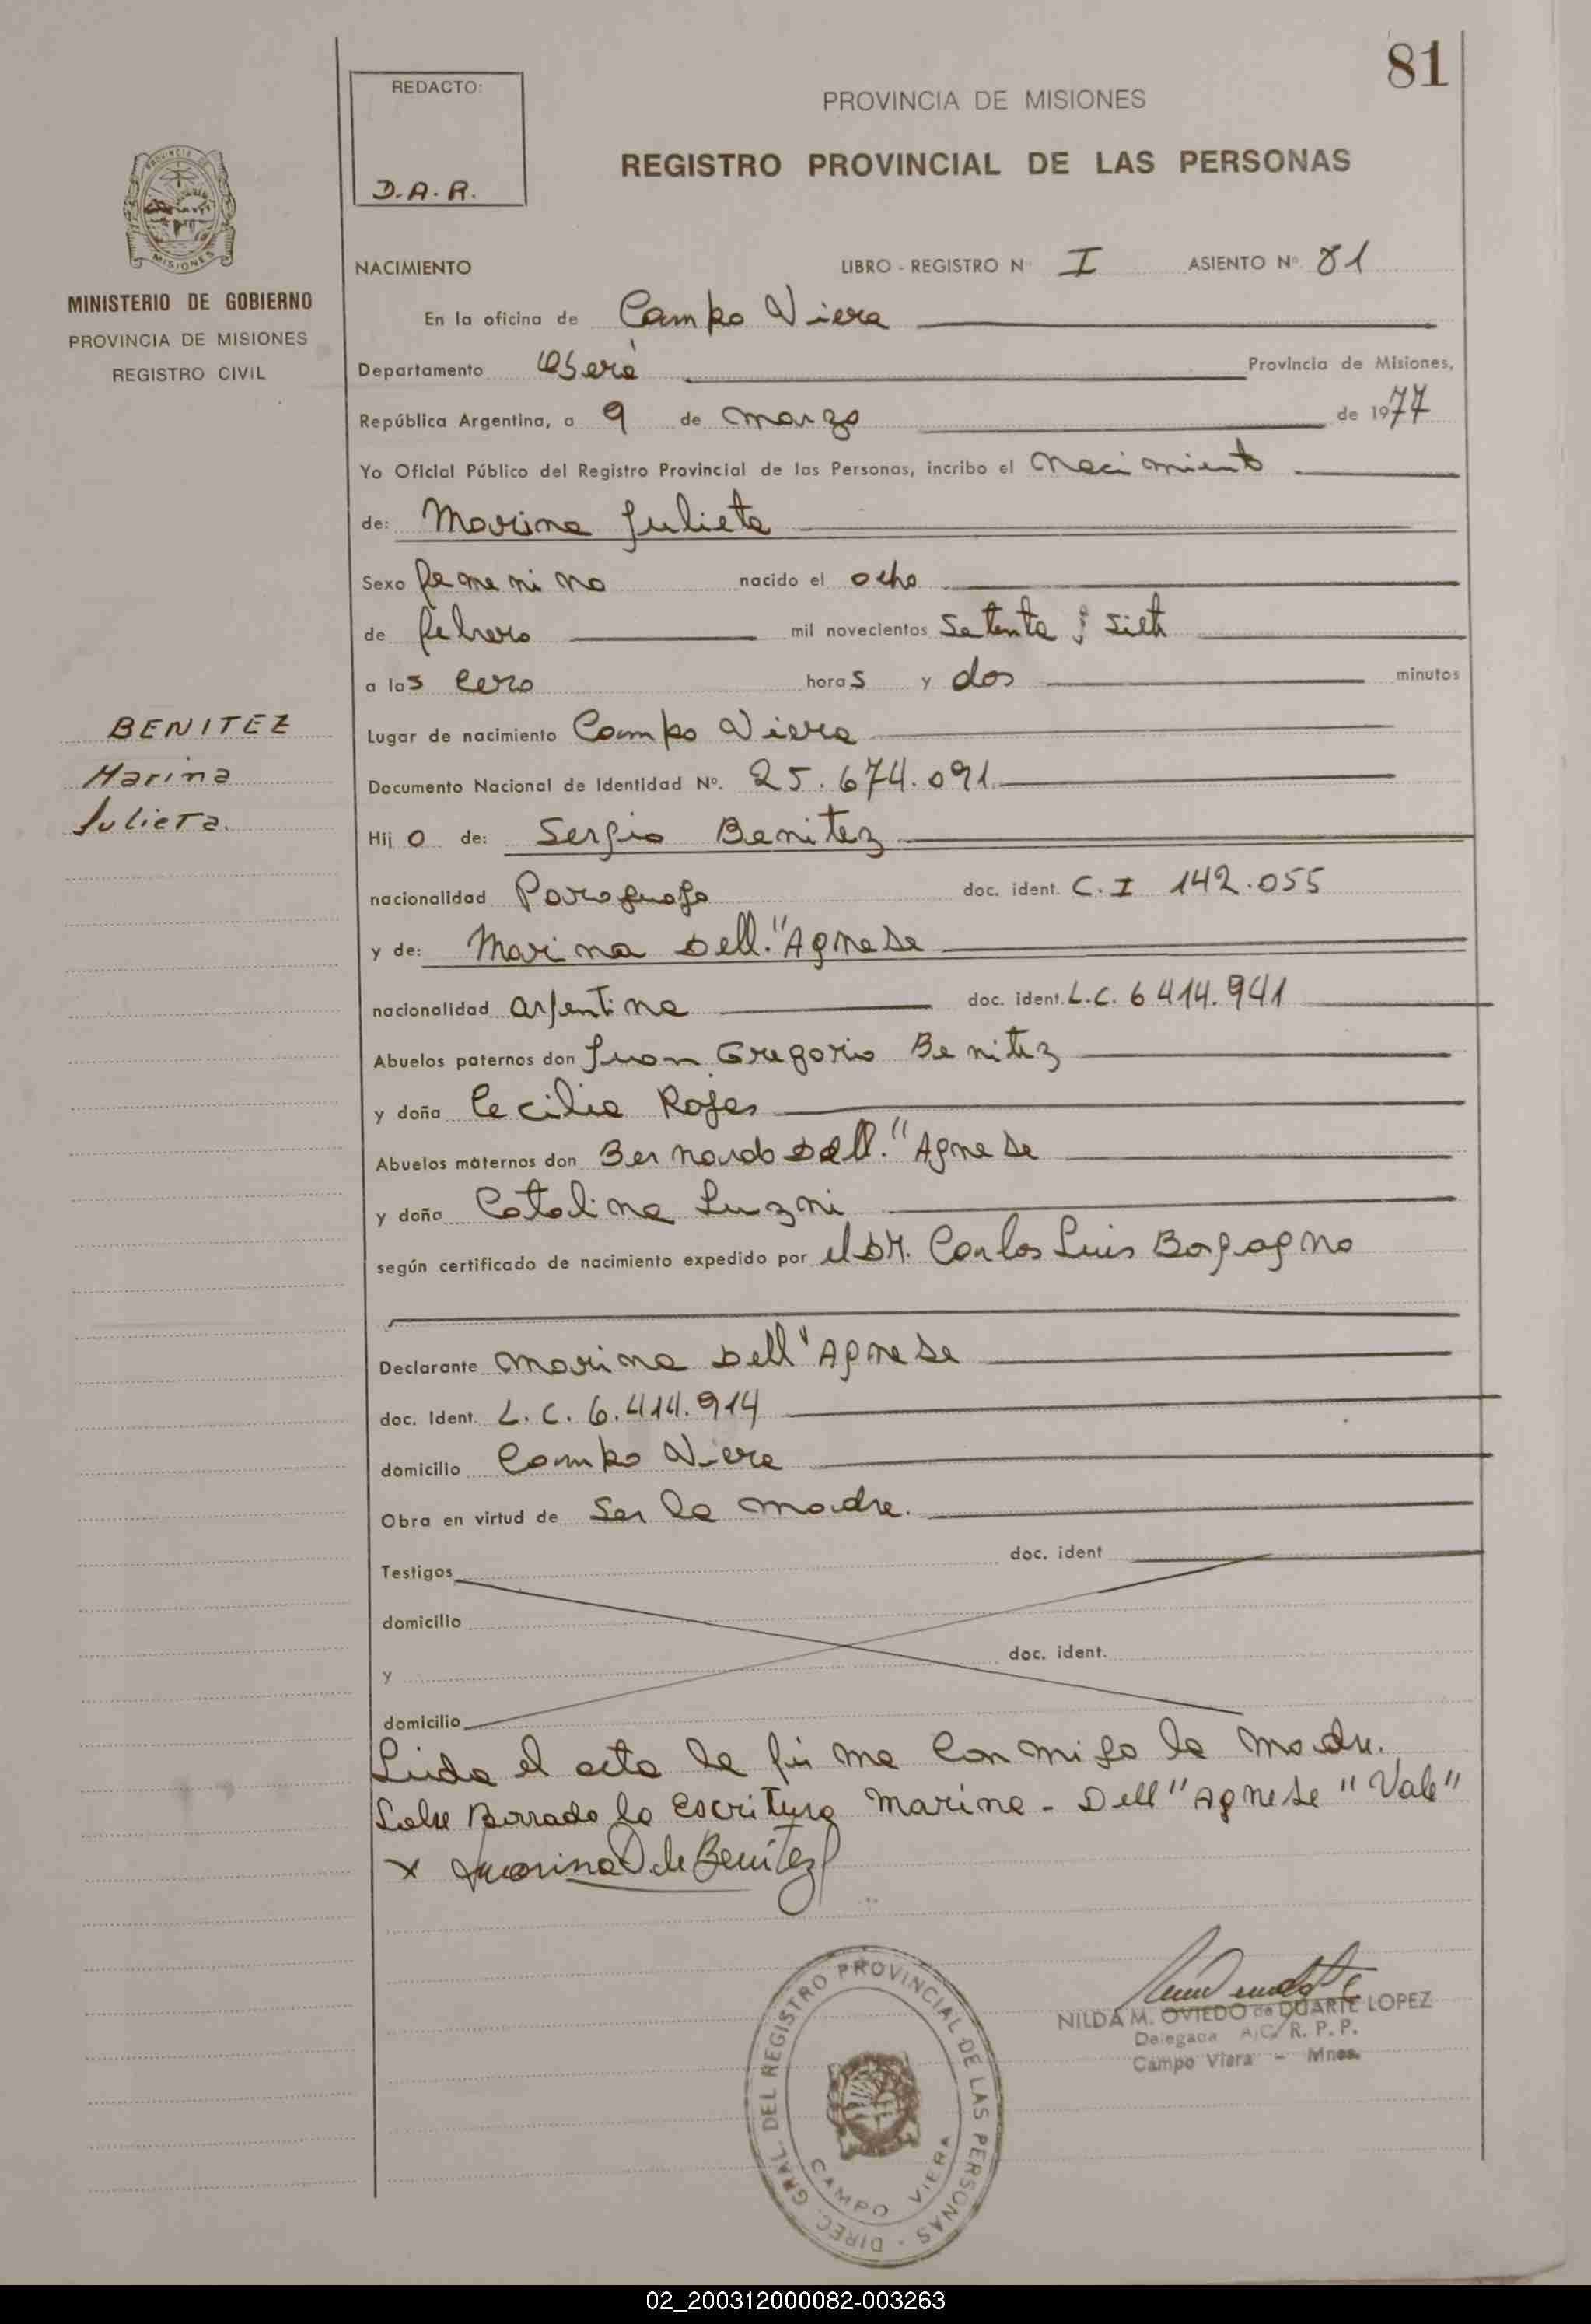 81
REDACTO:
D.A.R.
PROVINCIA DE MISIONES
REGISTRO PROVINCIAL DE LAS PERSONAS
MISIONES
MINISTERIO DE GOBIERNO
PROVINCIA DE MISIONES
REGISTRO CIVIL
NACIMIENTO LIBRO - REGISTRO N I ASIENTO Nº 81
En la oficina de Campo Viera
Departamento Oberá Provincia de Misiones,
República Argentina, a 9 de marzo de 1977
Yo Oficial Público del Registro Provincial de las Personas, incribo el Nacimiento
de: Marina Julieta
Sexo femenino nacido el ocho
de febrero mil novecientos setenta y siete
a las cero horas y dos minutos
BENITEZ
Marina
Julieta.
Lugar de nacimiento Campo Viera
Documento Nacional de Identidad Nº. 25.674.091
Hij o de: Sergio Benitez
nacionalidad Paraguayo doc. ident. C.I 142.055
y de: Marina Dell."Agnese
nacionalidad argentina doc. ident. L.C. 6 414.941
Abuelos paternos don Juan Gregorio Benitez
y doña Cecilia Rojas
Abuelos maternos don Bernardo Dell."Agnese
y doña Catalina Luzni
según certificado de nacimiento expedido por el Dr. Carlos Luis Bagagno
Declarante Marina Dell"Agnese
doc. Ident. L.C. 6.414.914
domicilio Campo Viera
Obra en virtud de ser la madre.
Testigos doc. ident
domicilio
y doc. ident.
domicilio
Leida el acta la firma conmigo la madre.
Sobre Borrado la escritura Marina - Dell"Agnese "Vale"
x Marina D de Benitez
DIREC. GRAL. DEL REGISTRO PROVINCIAL DE LAS PERSONAS -
CAMPO VIERA
NILDA M. OVIEDO de DUARTE LOPEZ
Delegada A/C/ R. P. P.
Campo Viera - Mnes.
02_200312000082-003263